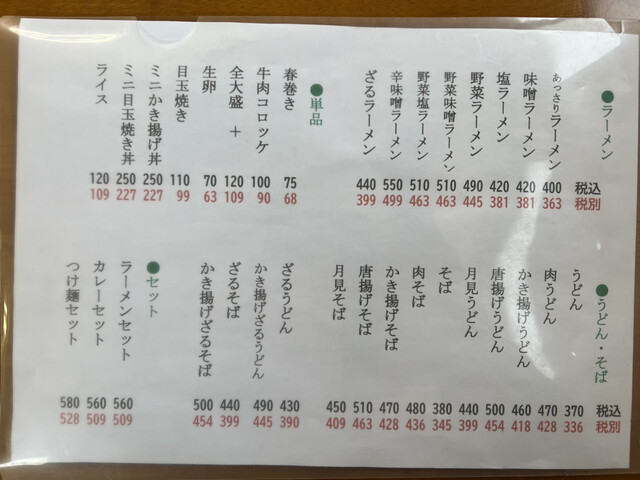 ●ラーメン 税込 税別
あっさりラーメン 400 363
味噌ラーメン 420 381
塩ラーメン 420 381
野菜ラーメン 490 445
野菜味噌ラーメン 510 463
野菜塩ラーメン 510 463
辛味噌ラーメン 550 499
ざるラーメン 440 399
●単品
春巻き 75 68
牛肉コロッケ 100 90
全大盛 + 120 109
生卵 70 63
目玉焼き 110 99
ミニかき揚げ丼 250 227
ミニ目玉焼き丼 250 227
ライス 120 109
●うどん・そば 税込 税別
うどん 370 336
肉うどん 470 428
かき揚げうどん 460 418
唐揚げうどん 500 454
月見うどん 440 399
そば 380 345
肉そば 480 436
かき揚げそば 470 428
唐揚げそば 510 463
月見そば 450 409
ざるうどん 430 390
かき揚げざるうどん 490 445
ざるそば 440 399
かき揚げざるそば 500 454
●セット
ラーメンセット 560 509
カレーセット 560 509
つけ麺セット 580 528